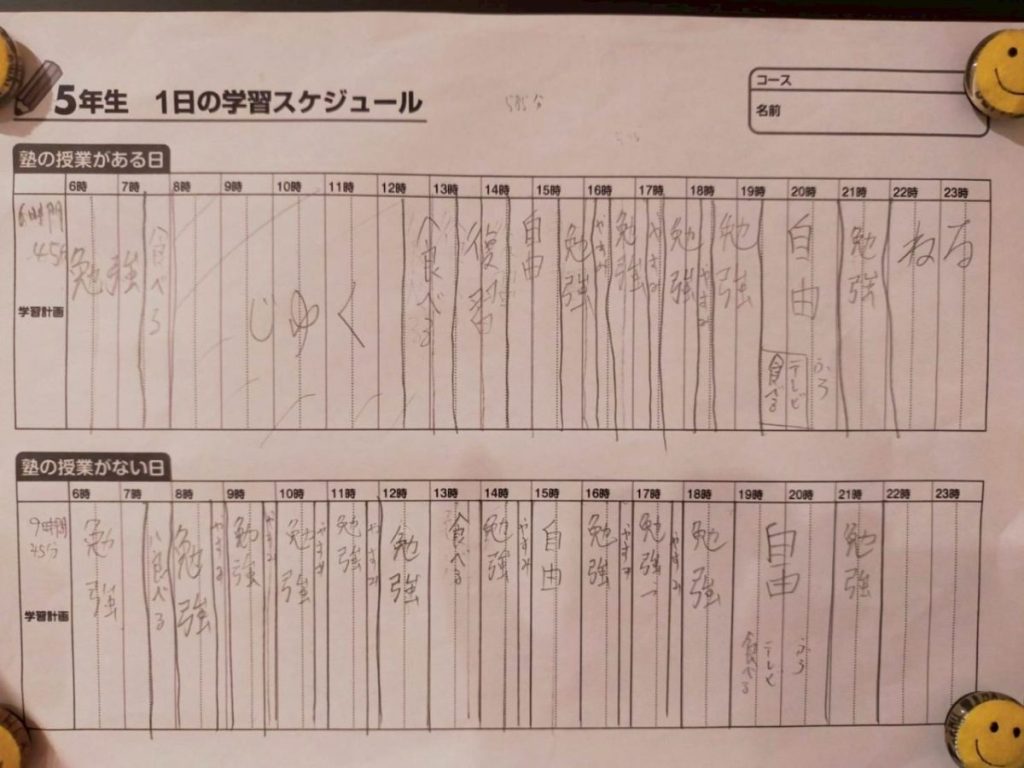 5年生 1日の学習スケジュール
コース
名前
塾の授業がある日
6時 7時 8時 9時 10時 11時 12時 13時 14時 15時 16時 17時 18時 19時 20時 21時 22時 23時
6時間
45分
学習計画
勉強 食べる じゅく 食べる 復習 自由 勉強 やすみ 勉強 やすみ 勉強 やすみ 勉強 自由 勉強 ねる
食べる テレビ ふろ
塾の授業がない日
6時 7時 8時 9時 10時 11時 12時 13時 14時 15時 16時 17時 18時 19時 20時 21時 22時 23時
9時間
45分
学習計画
勉強 食べる 勉強 やすみ 勉強 やすみ 勉強 やすみ 勉強 やすみ 勉強 食べる 勉強 やすみ 自由 勉強 やすみ 勉強 やすみ 勉強 自由 勉強
食べる テレビ ふろ